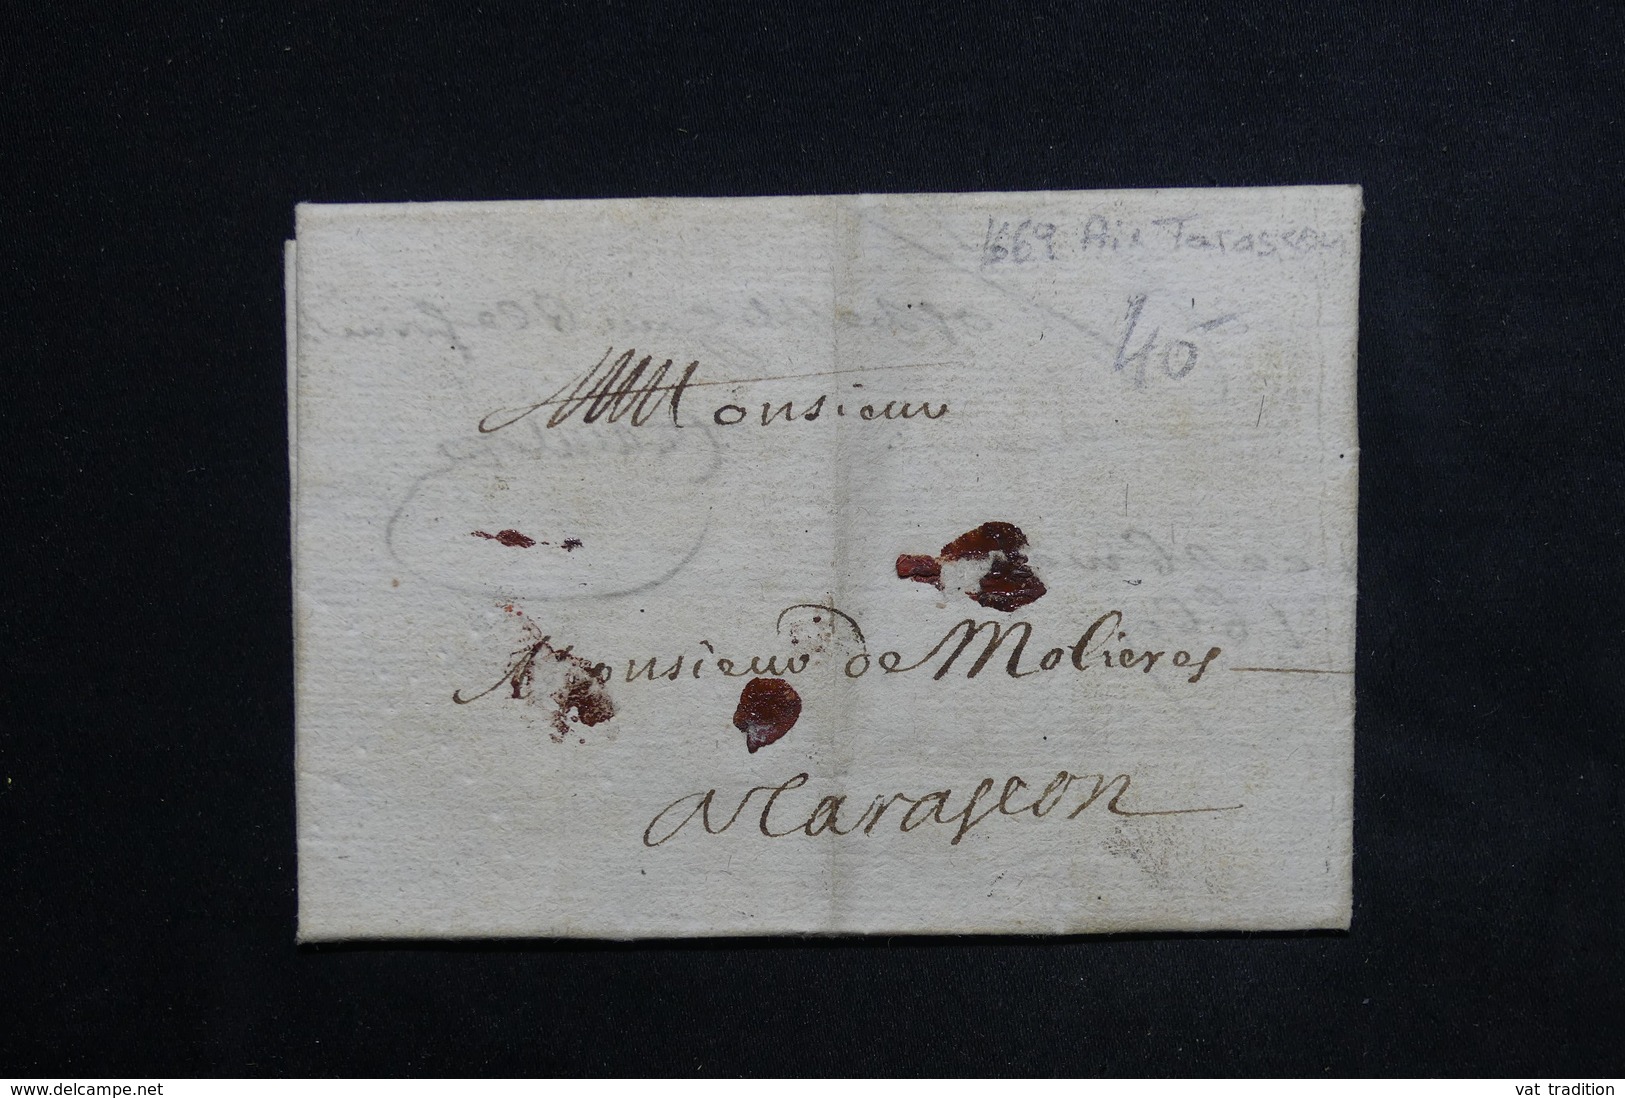 1669 Aix Tarascon
40-
Monsieur
Monsieur de Molieres
A Tarascon
www.delcampe.net
vat tradition